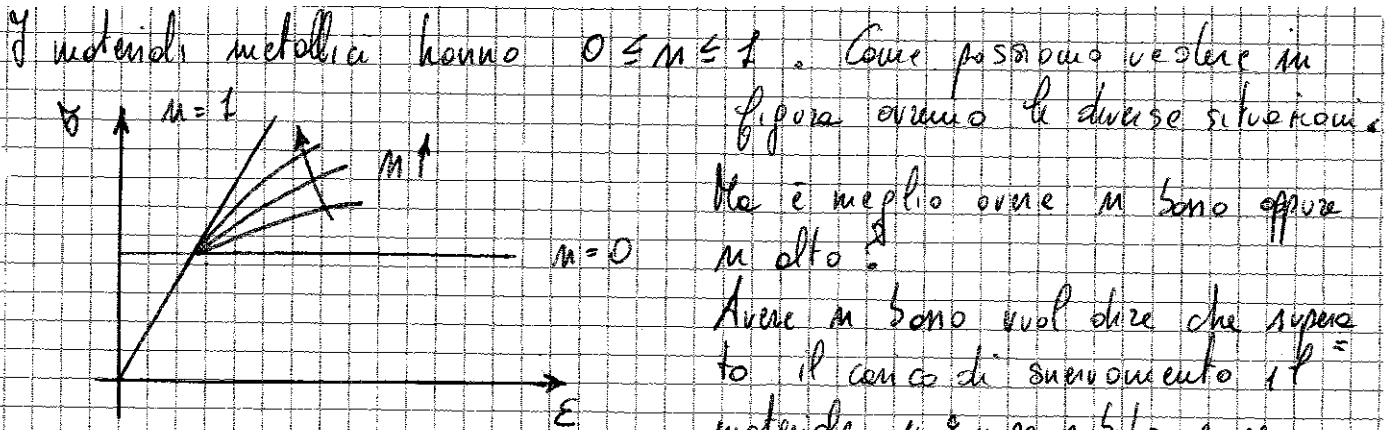 I materiali metallici hanno 0 ≤ n ≤ 1. Come possiamo vedere in
figura avremo le diverse situazioni.
σ n=1
n↑
Ma è meglio avere n basso oppure
n=0
n alto?
Avere n basso vuol dire che supera=
to il carico di snervamento il
ε
materiale